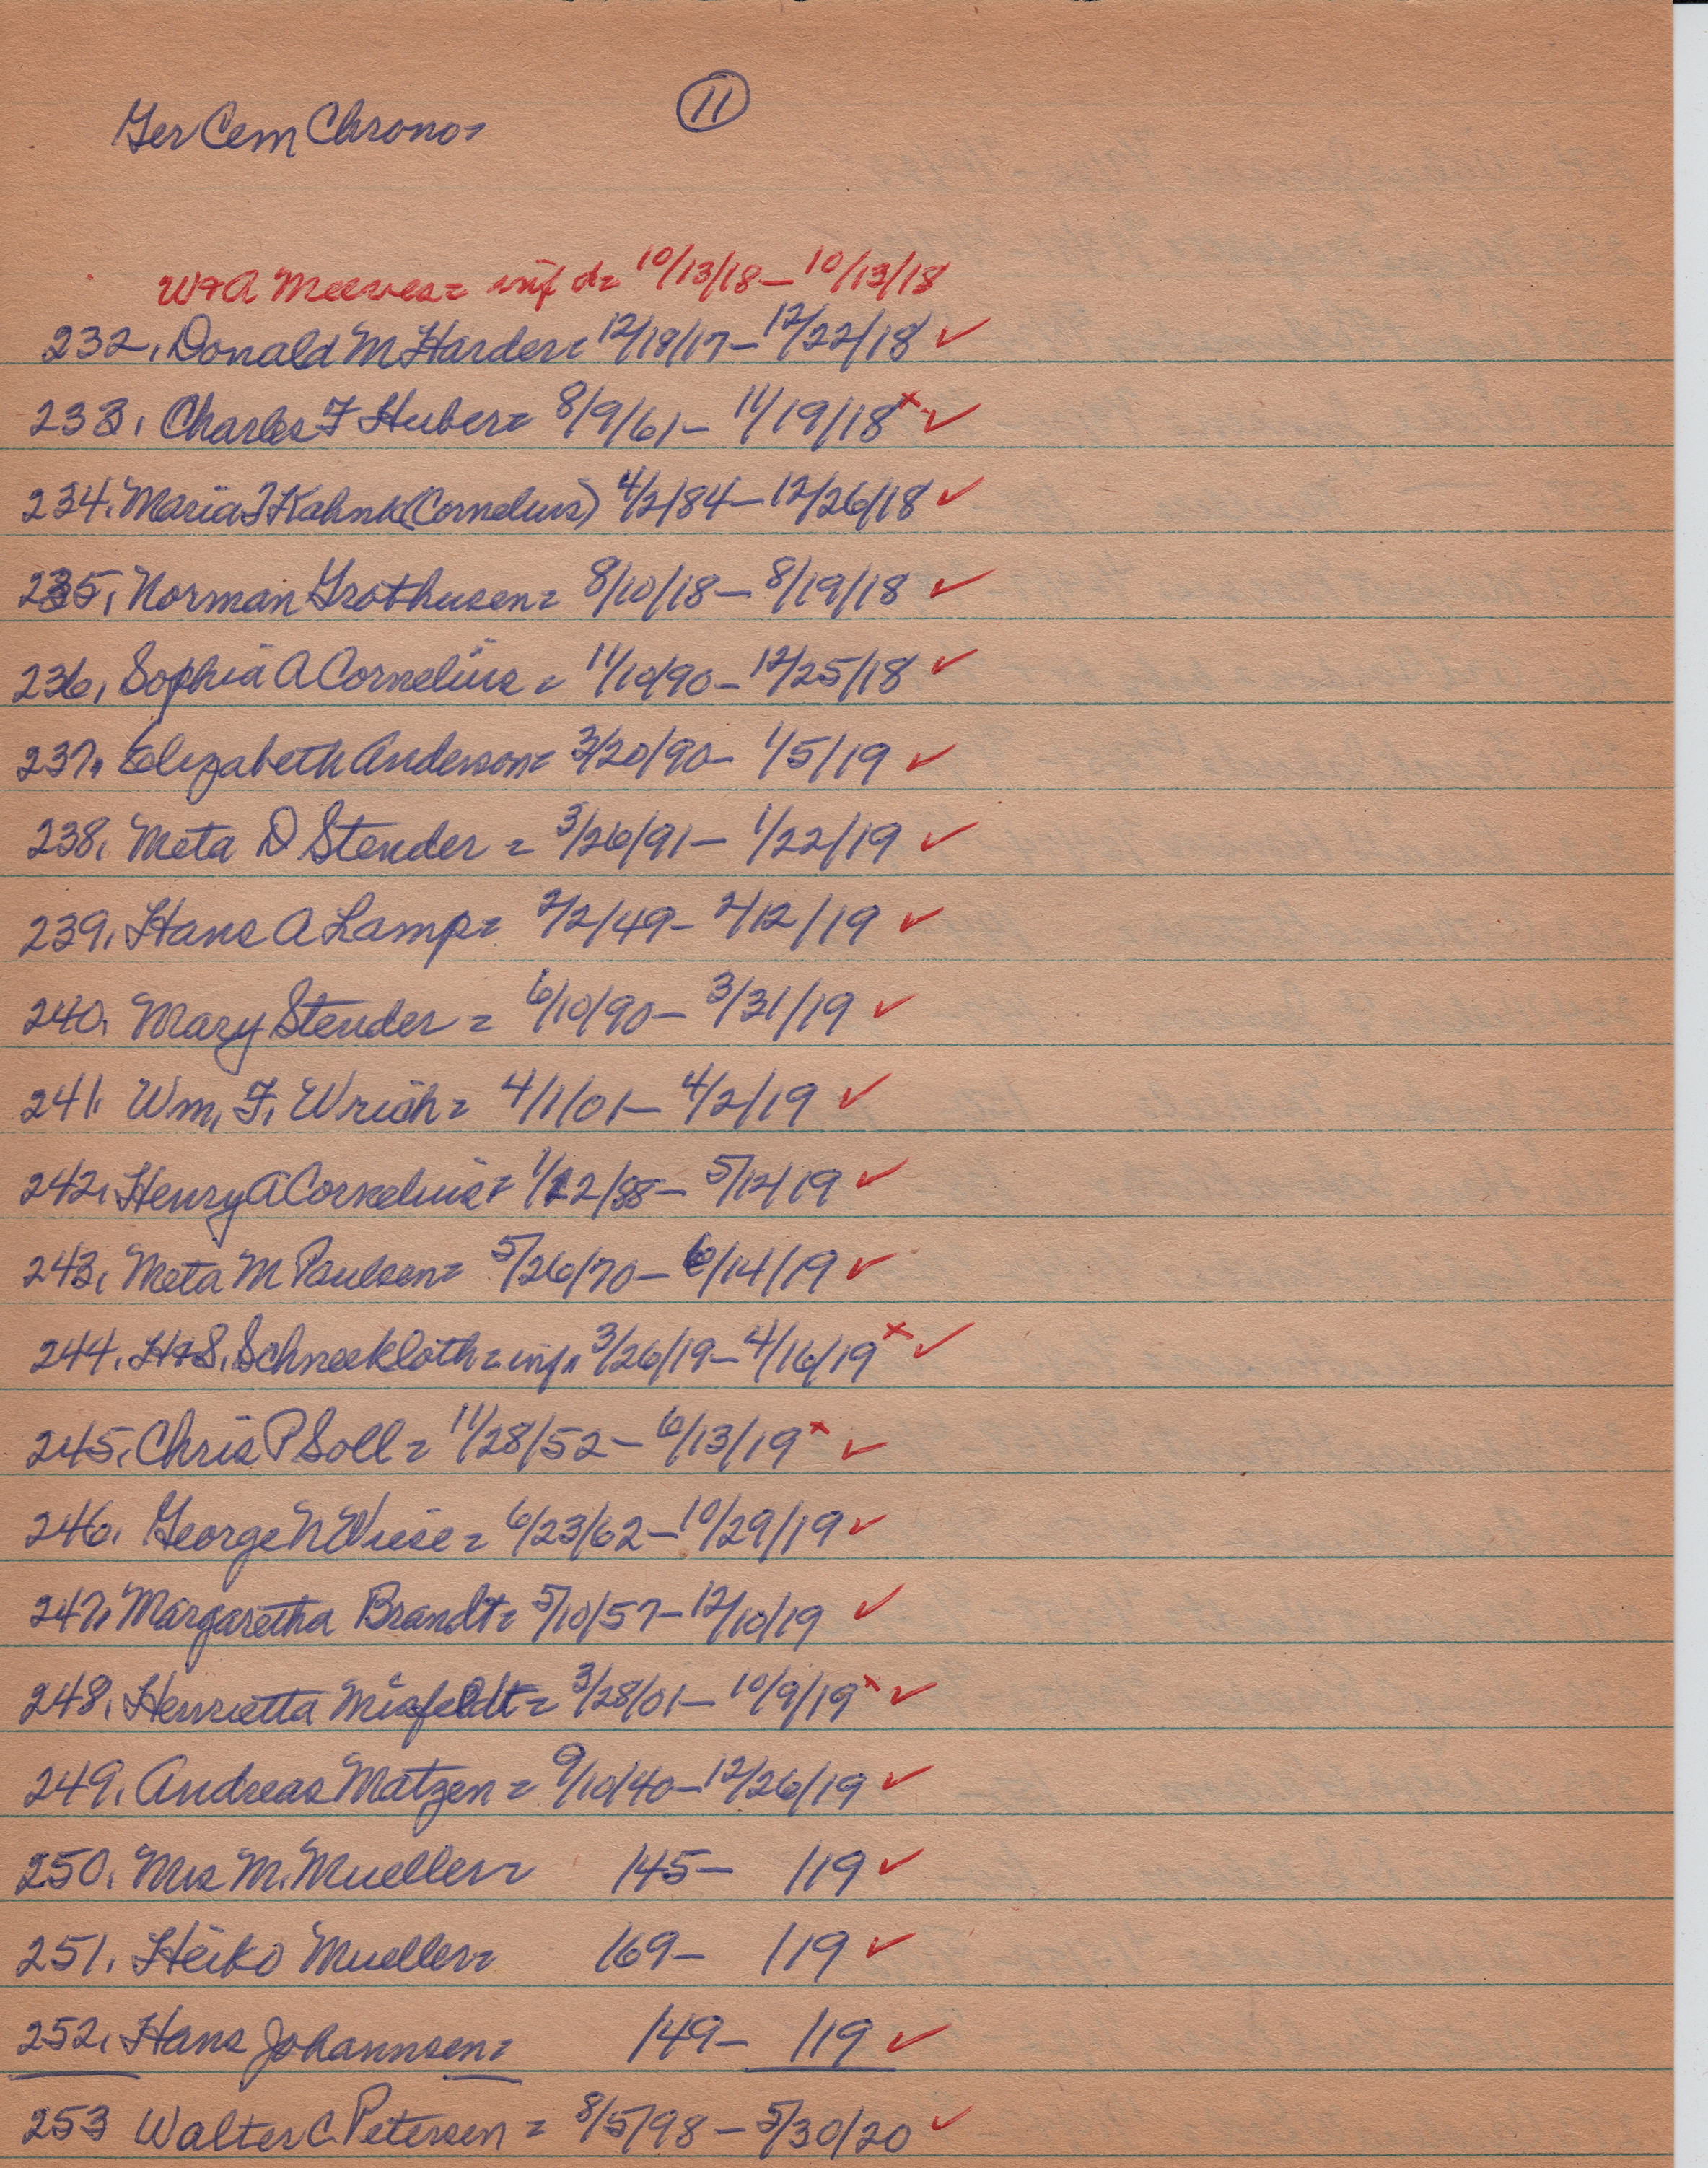 Ger Cem Chrono=
11
W+A Meeves= inf d= 10/13/18 – 10/13/18
232. Donald M Harder= 12/18/17 – 12/22/18 ✓
233. Charles F Huber= 8/9/61 – 11/19/18 x ✓
234. Maria J Kahnk (Cornelius) 4/2/84 – 12/26/18 ✓
235. Norman Grothusen= 8/10/18 – 8/19/18 ✓
236. Sophia A Cornelius = 11/10/90 – 12/25/18 ✓
237. Elizabeth Anderson= 3/20/90 – 1/5/19 ✓
238. Meta D Stender = 3/26/91 – 1/22/19 ✓
239. Hans A Lamp= 2/2/49 – 2/12/19 ✓
240. Mary Stender = 6/10/90 – 3/31/19 ✓
241. Wm. F. Wrich= 4/1/01 – 4/2/19 ✓
242. Henry A Cornelius= 1/22/88 – 5/12/19 ✓
243. Meta M Paulsen= 5/26/70 – 6/14/19 ✓
244. H+S. Schneekloth= inf. 3/26/19 – 4/16/19 x ✓
245. Chris P Soll= 11/28/52 – 6/13/19 x ✓
246. George N Wiese = 6/23/62 – 10/29/19 ✓
247. Margaretha Brandt= 5/10/57 – 12/10/19 ✓
248. Henrietta Misfeldt= 3/28/01 – 10/9/19 x ✓
249. Andreas Matzen = 9/10/40 – 12/26/19 ✓
250. Mrs M. Mueller= /45 – /19 ✓
251. Heiko Mueller= /69 – /19 ✓
252. Hans Johannsen= /49 – /19 ✓
253 Walter C. Petersen = 8/5/98 – 5/30/20 ✓